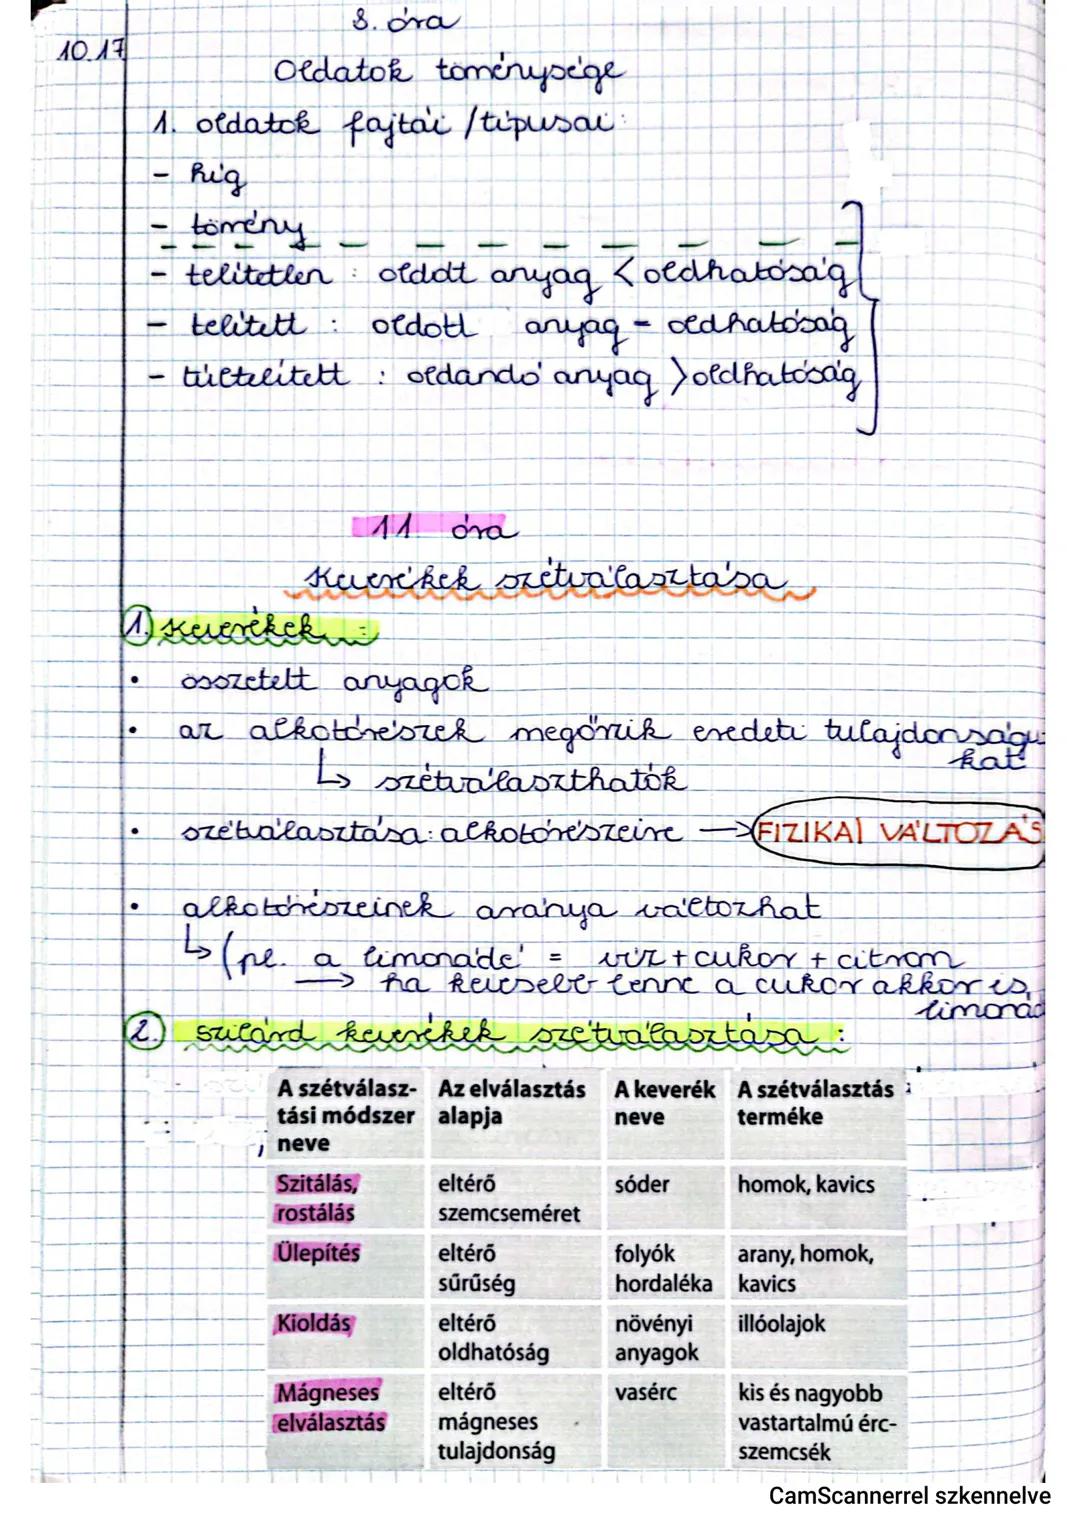 8. óra
10.17
Oldatok töménysége
1. oldatok fajtái /típusai:
- híg
- tömény
- telítetlen : oldott anyag < oldhatóság
- telített : oldott anyag - oldhatóság
- túltelített : oldandó anyag > oldhatóság
11 óra
Keverékek szétválasztása
1. Keverékek :
• összetett anyagok
• az alkotórészek megőrzik eredeti tulajdonságu
kat
↳ szétválaszthatók
• szétválasztása: alkotórészeire → FIZIKAI VÁLTOZÁS
• alkotórészeinek aránya változhat
↳ (pl. a limonádé = víz + cukor + citrom
→ ha kevesebb lenne a cukor akkor is
limonád
2. szilárd keverékek szétválasztása :
A szétválasz- Az elválasztás A keverék A szétválasztás
tási módszer alapja neve terméke
neve
Szitálás, eltérő sóder homok, kavics
rostálás szemcseméret
Ülepítés eltérő folyók arany, homok,
sűrűség hordaléka kavics
Kioldás eltérő növényi illóolajok
oldhatóság anyagok
Mágneses eltérő vasérc kis és nagyobb
elválasztás mágneses vastartalmú érc-
tulajdonság szemcsék
CamScannerrel szkennelve